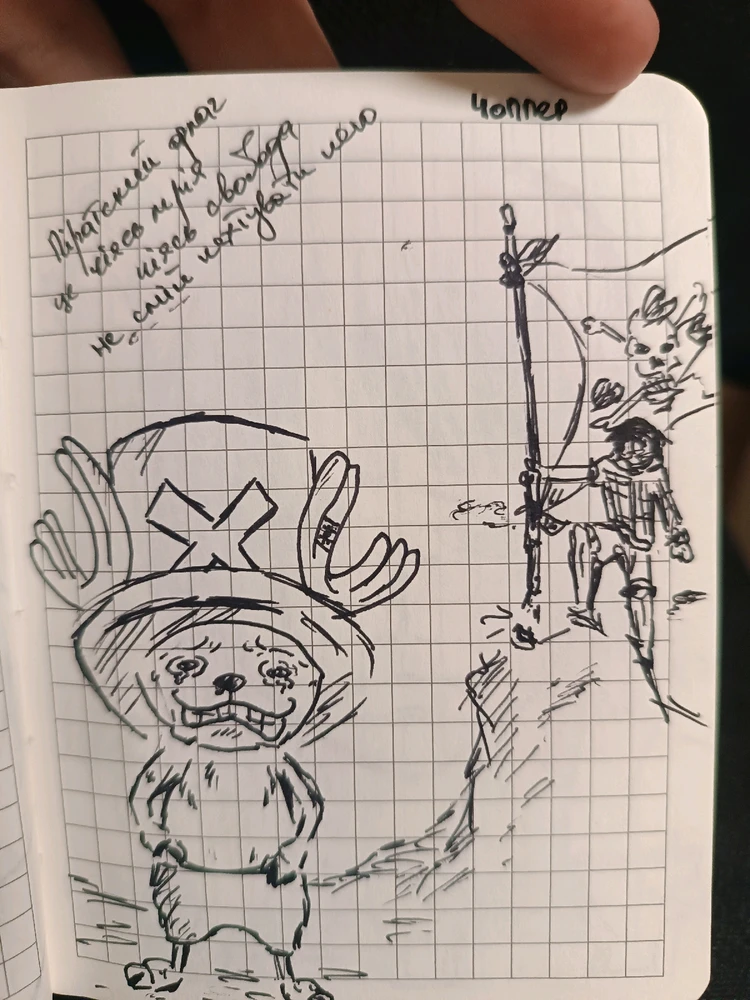 Чоппер
Піратский флаг
це чіясь мрія
чіясь свобода
не смій нехтувати нею